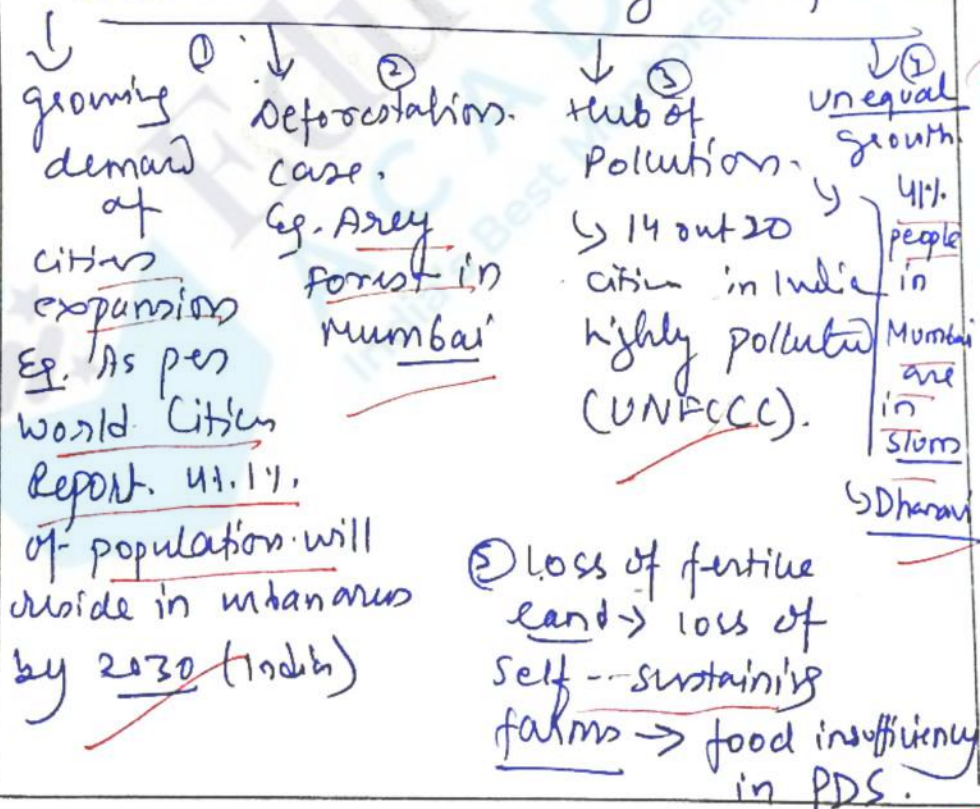 ①
growing
demand
of
cities
expansion
Eg. As per
World Cities
Report. 41.1%.
of population will
reside in urban areas
by 2030 (India)
②
Deforestation.
case.
Eg. Arey
forest in
Mumbai
③
Hub of
Pollution.
↳ 14 out 20
cities in India
highly polluted
(UNFCCC).
④
unequal
growth.
41%.
people
in
Mumbai
are
in
slum
↳ Dharavi
⑤ Loss of fertile
land → loss of
self--sustaining
farms → food insufficiency
in PDS.